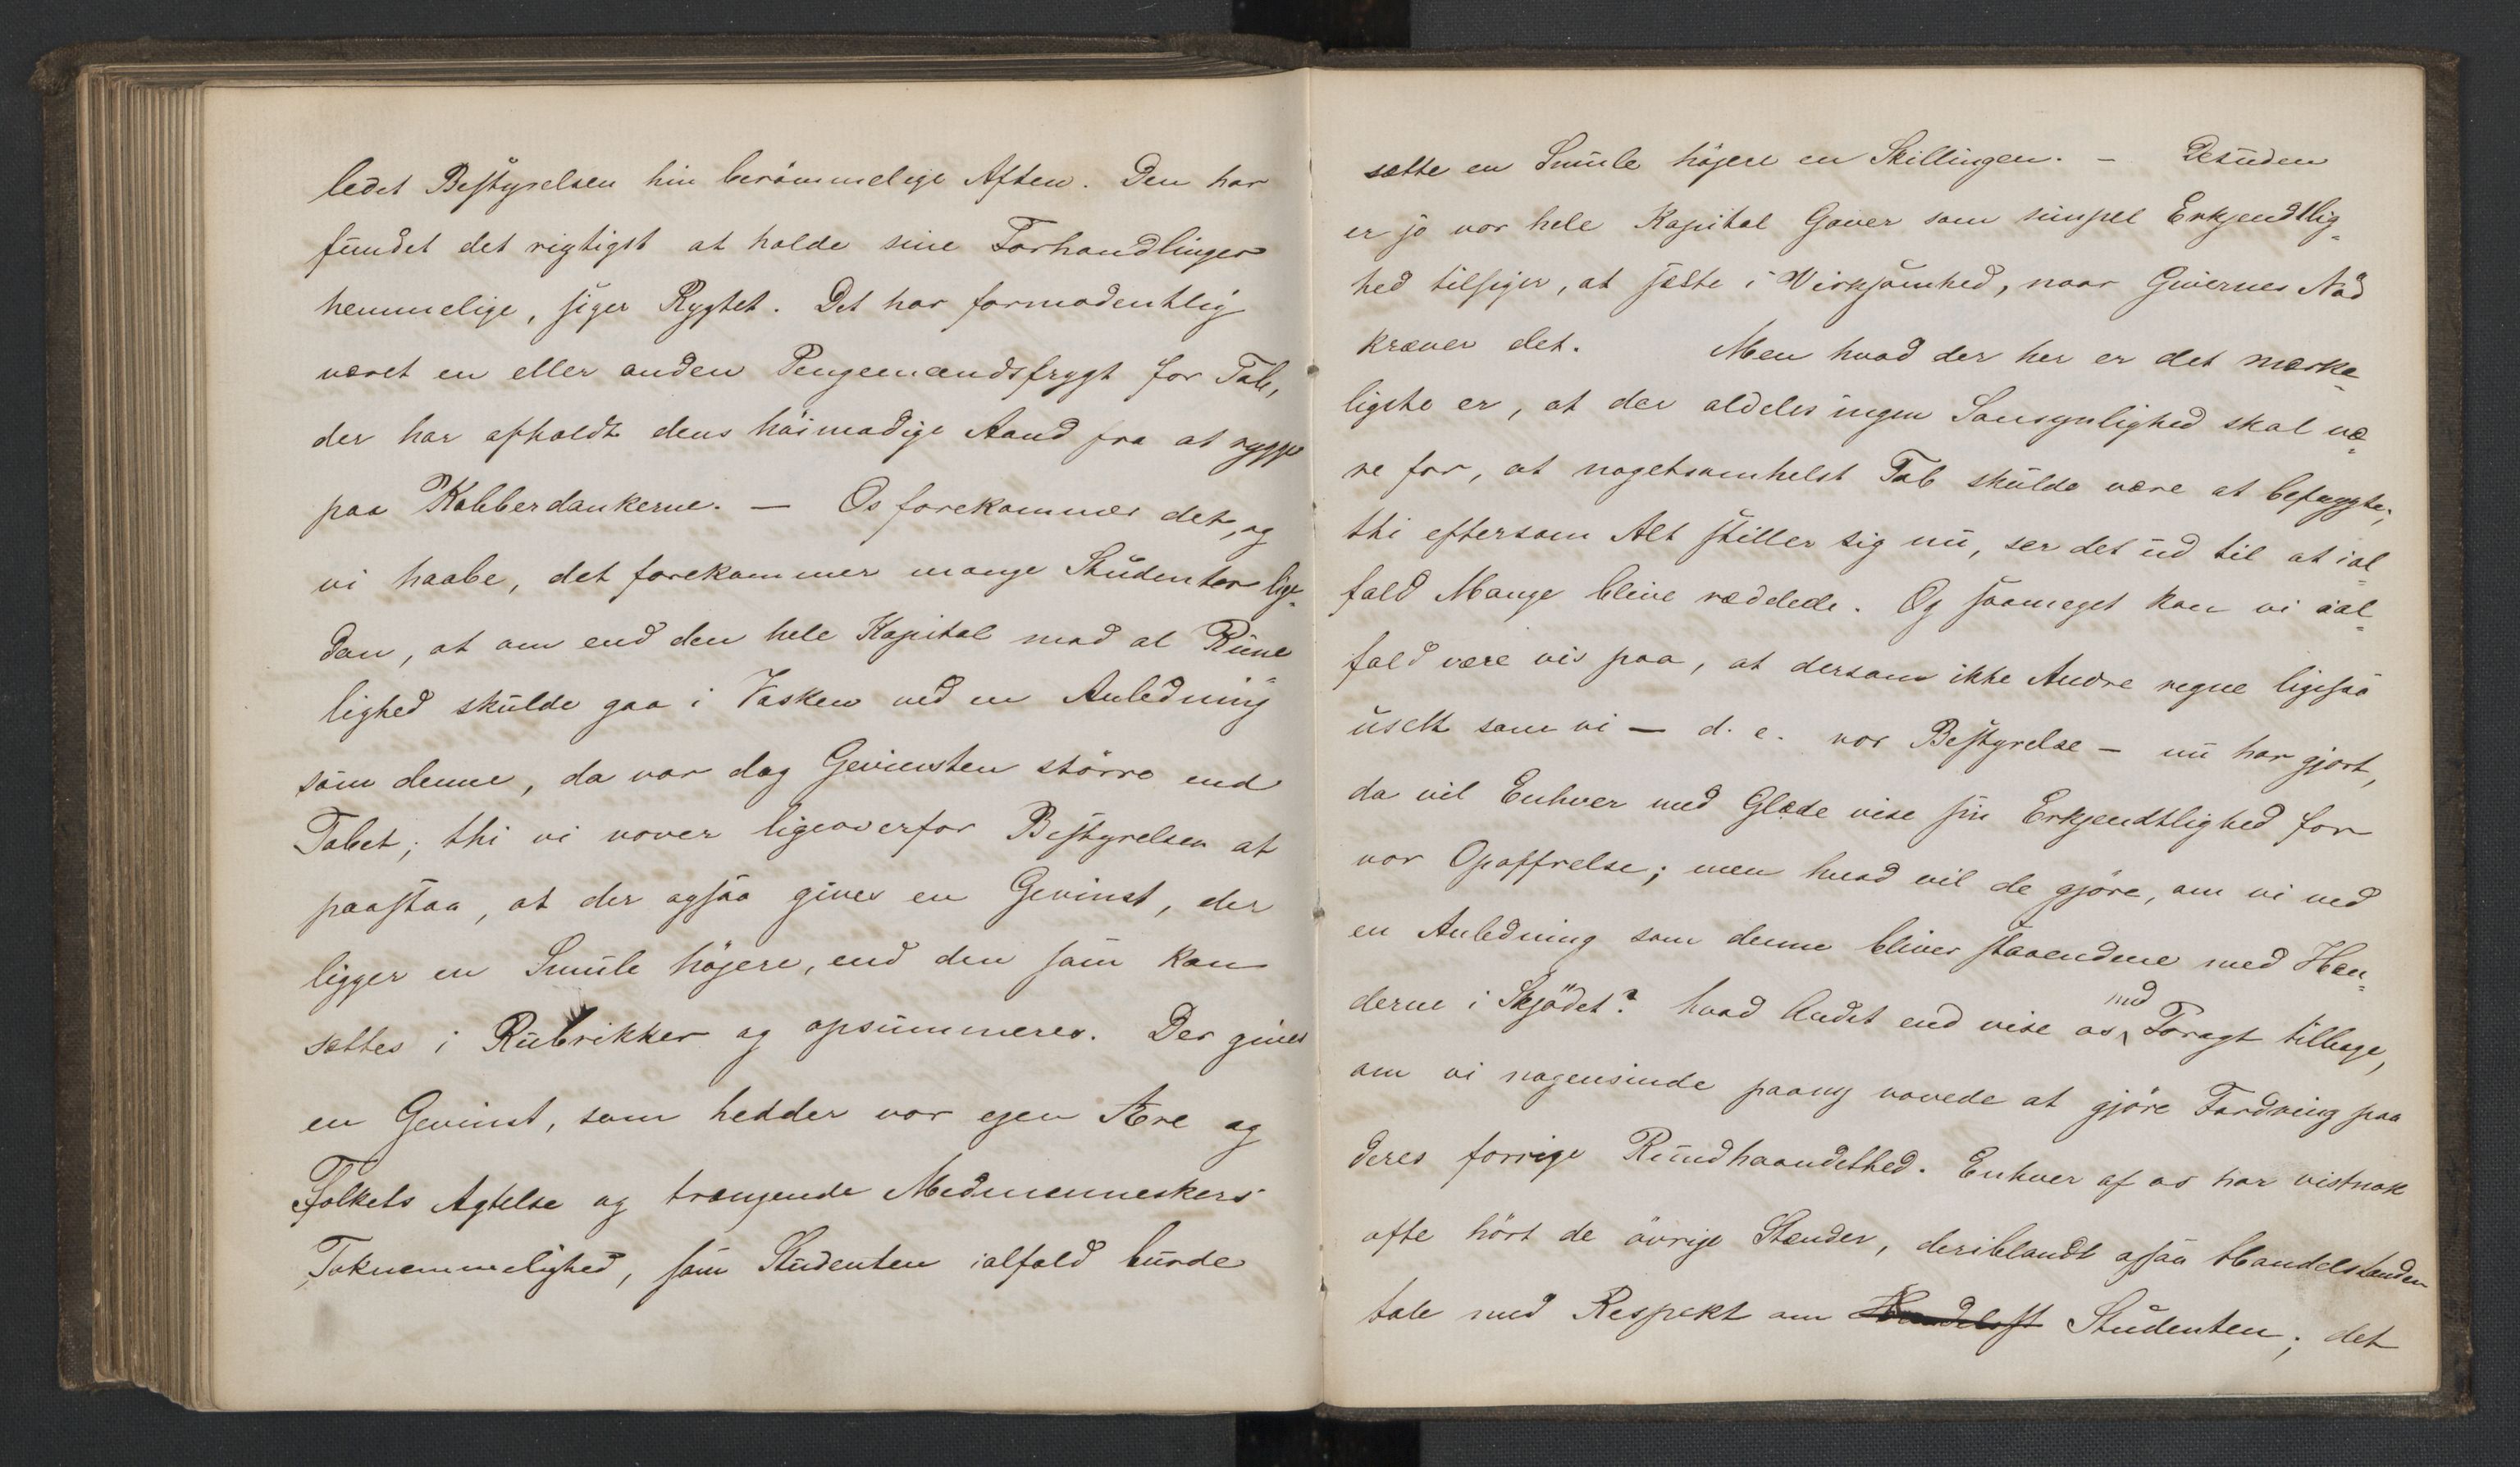 ledet Bestyrelsen hin berömmelige Aften. Den har
fundet det rigtigst at holde sine Forhandlinger
hemmelige, siger Rygtet. Det har formodentlig
været en eller anden Pengemandsfrygt for Tab,
der har afholdt dens höimodige Aand fra at rygge
paa Kobberdankerne. — Os forekommer det, og
vi haabe, det forekommer mange Studenter lige-
dan, at om end den hele Kapital mod al Rime
lighed skulde gaa i Vasken ved en Anledning
som denne, da var dog Gevinsten större end
Tabet; thi vi vover ligeoverfor Bestyrelsen at
paastaa, at der ogsaa gives en Gevinst, der
ligger en Smule höjere, end den som kan
sættes i Rubrikker og opsummeres. Der gives
en Gevinst, som hedder vor egen Ære og
Folkets Agtelse og trængende Medmenneskers
Taknemmelighed, som Studenten ialfald burde
sætte en Smule höjere en Skillingen. — Desuden
er jo vor hele Kapital Gaver som simpel Erkjendtlig-
hed tilsiger, at sætte i Virksomhed, naar Givernes Nöd
kræver det. Men hvad der her er det mærke-
ligste er, at der aldeles ingen Sansynlighed skal væ-
re for, at nogetsomhelst Tab skulde være at befrygte;
thi eftersom Alt stiller sig nu, ser det ud til at ial-
fald Mange blive reddede. Og saameget kan vi ial-
fald være vis paa, at dersom ikke Andre regne ligesaa
uselt som vi — d. e. vor Bestyrelse — nu har gjort,
da vil Enhver med Glæde vise sin Erkjendtlighed for
vor Opoffrelse; men hvad vil de gjöre, om vi ved
en Anledning som denne bliver staaendene med Hæn-
derne i Skjödet? hvad Andet end vise os med Foragt tilbage,
om vi nogensinde paany vovede at gjöre Fordring paa
deres forrige Rundhaandethed. Enhver af os har vistnok
ofte hört de övrige Stænder, deriblandt ogsaa Handelstanden
tale med Respekt om Handelsst Studenten; det